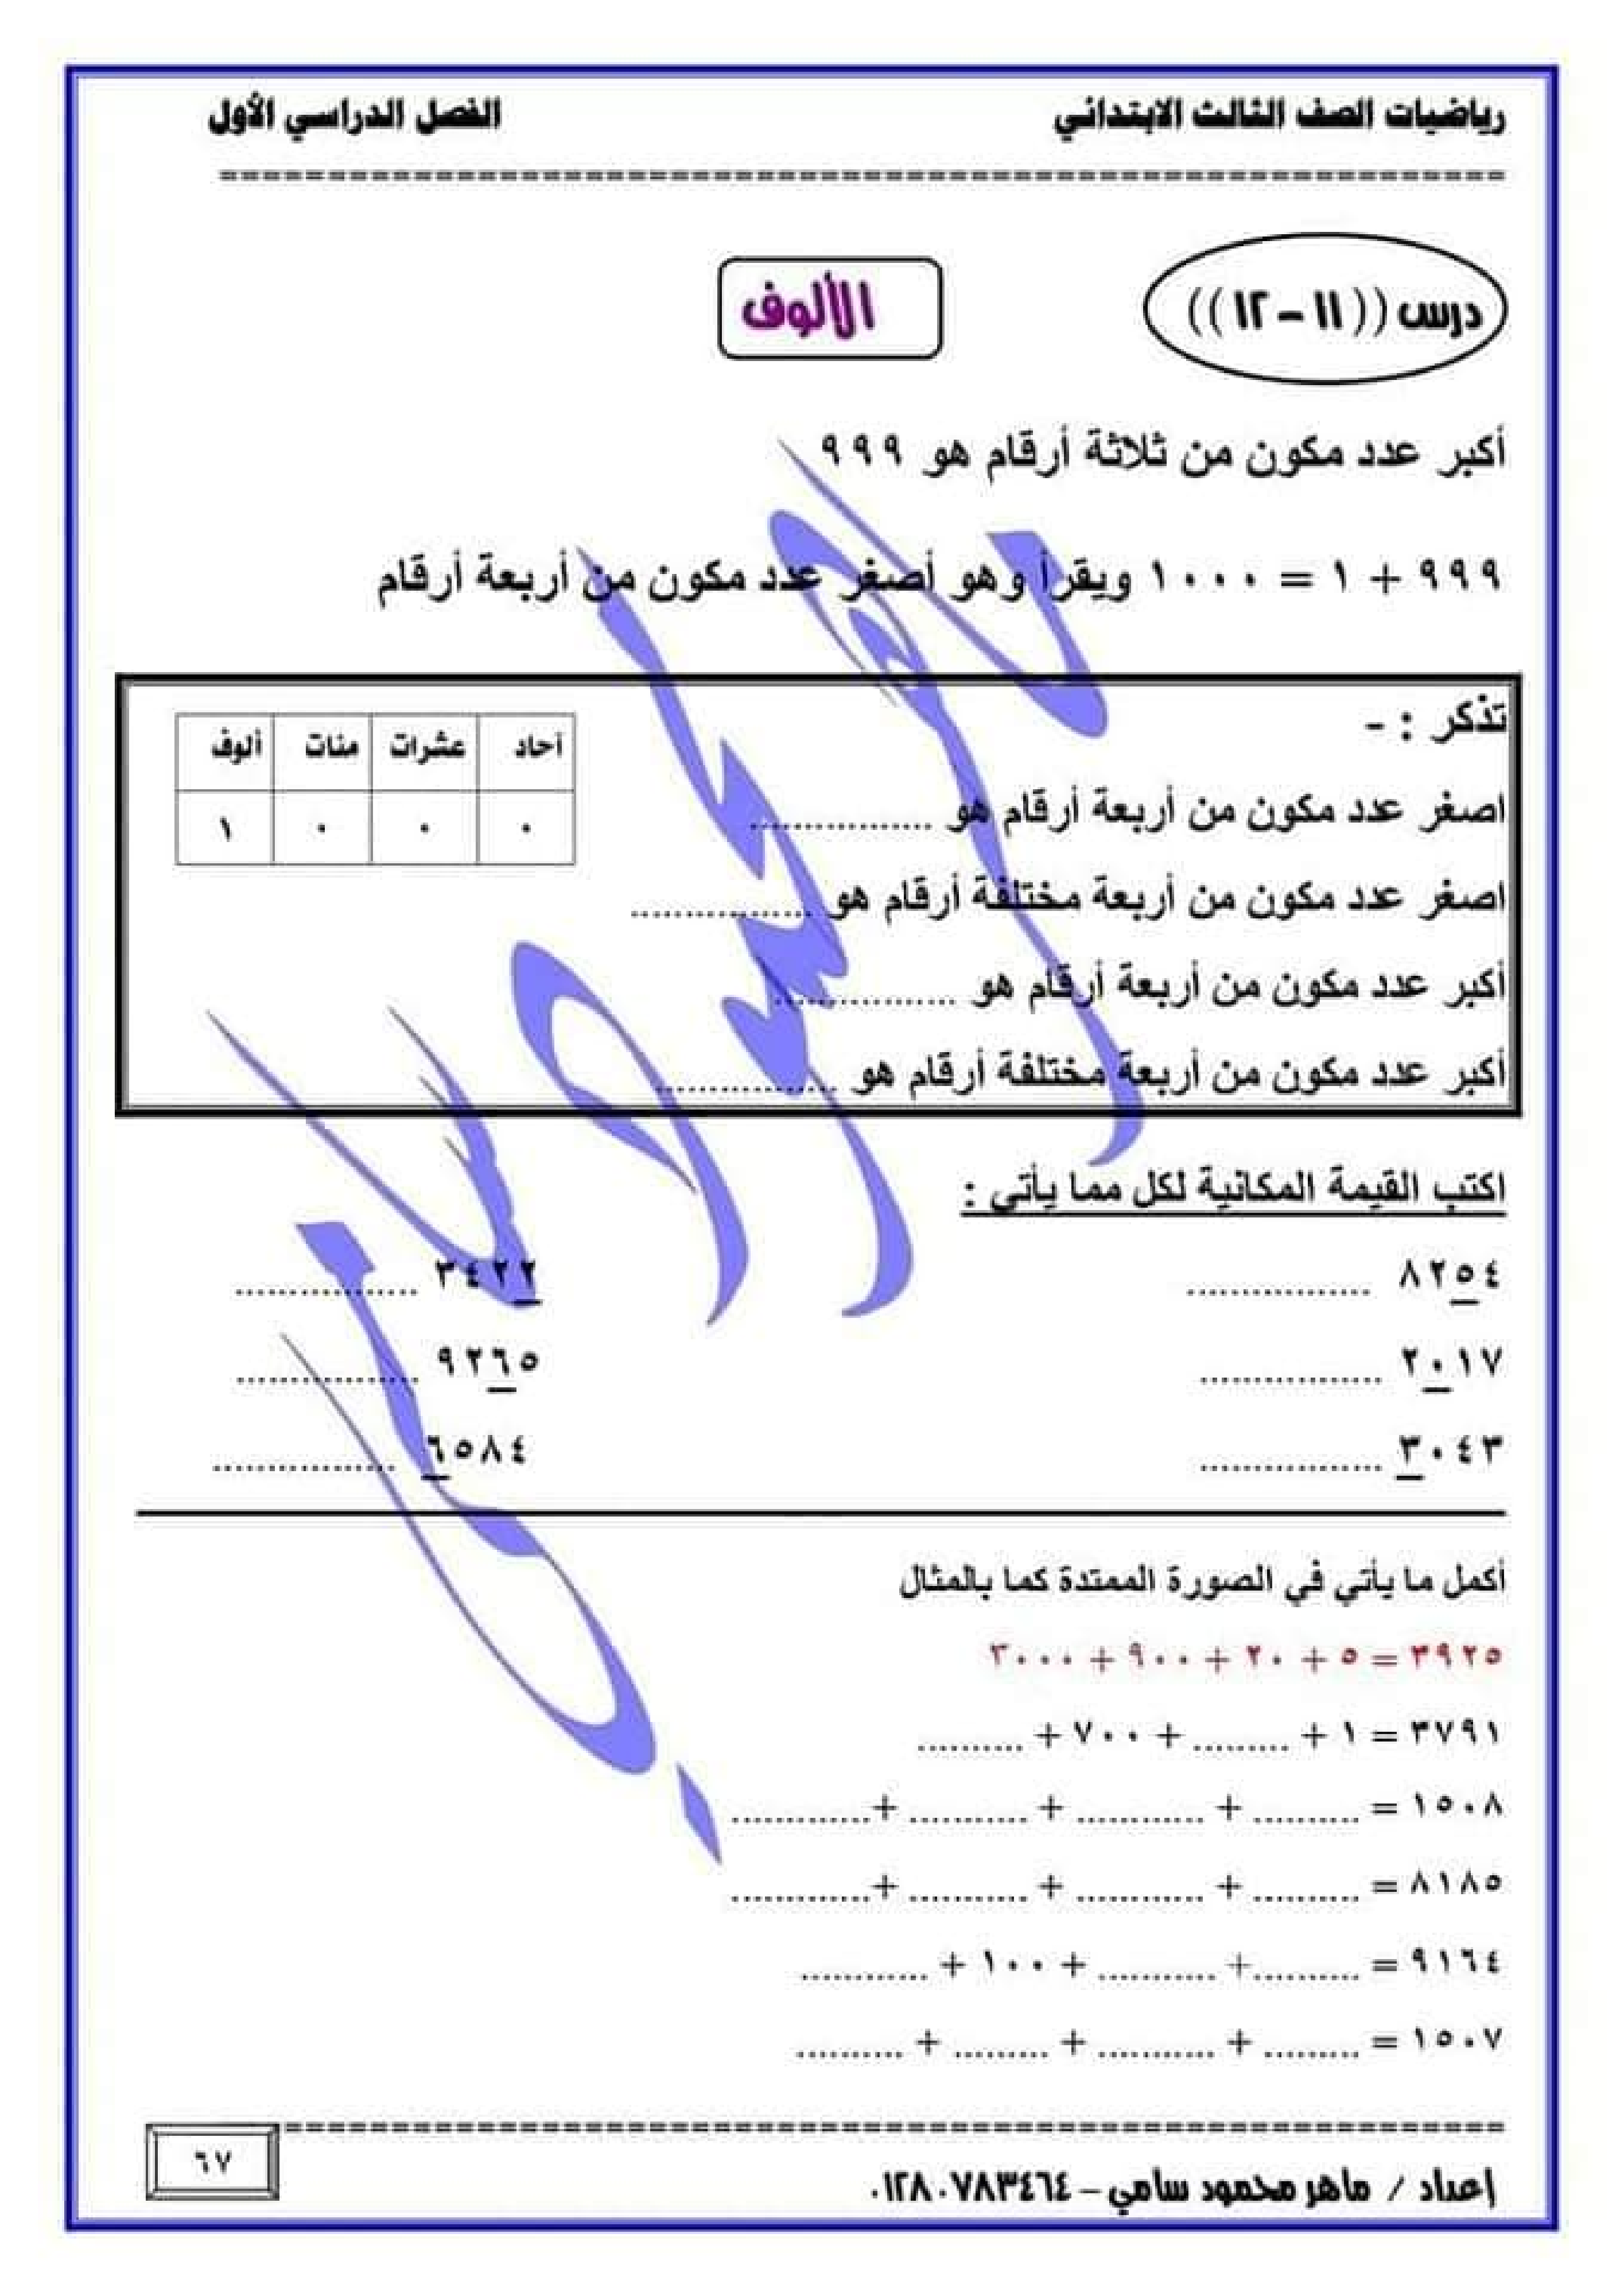 رياضيات الصف الثالث الابتدائي الفصل الدراسي الأول
درس (( ١١ – ١٢ )) الألوف
أكبر عدد مكون من ثلاثة أرقام هو ٩٩٩
٩٩٩ + ١ = ١٠٠٠ ويقرأ وهو أصغر عدد مكون من أربعة أرقام
تذكر : -
آحاد عشرات مئات ألوف
٠ ٠ ٠ ١
اصغر عدد مكون من أربعة أرقام هو ................
اصغر عدد مكون من أربعة مختلفة أرقام هو ................
أكبر عدد مكون من أربعة أرقام هو ................
أكبر عدد مكون من أربعة مختلفة أرقام هو ................
اكتب القيمة المكانية لكل مما يأتي :
٨٢٥٤ ................ ٣٤٢٢ ................
٢٠١٧ ................ ٩٢٦٥ ................
٣٠٤٣ ................ ٦٥٨٤ ................
أكمل ما يأتي في الصورة الممتدة كما بالمثال
٣٩٢٥ = ٥ + ٢٠ + ٩٠٠ + ٣٠٠٠
٣٧٩١ = ١ + ......... + ٧٠٠ + ..........
١٥٠٨ = .......... + ............ + ........... + .............
٨١٨٥ = .......... + ............ + ........... + .............
٩١٦٤ = .......... + ........... + ١٠٠ + ............
١٥٠٧ = ......... + ........... + ......... + ..........
إعداد / ماهر محمود سامي – ٠١٢٨٠٧٨٣٤٦٤
٦٧